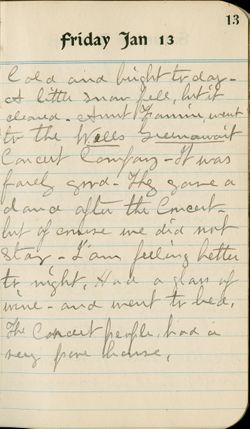 13
Friday Jan 13
Cold and bright to day-
A little snow fell, but it
cleared. Aunt Fannie, went
to the Wells
Concert Company - It was
farely good - They gave a
dance after the Concert-
but of course we did not
stay - I am feeling better
to night, Had a glass of
wine - and went to bed.
The Concert people, had a
very pore house,